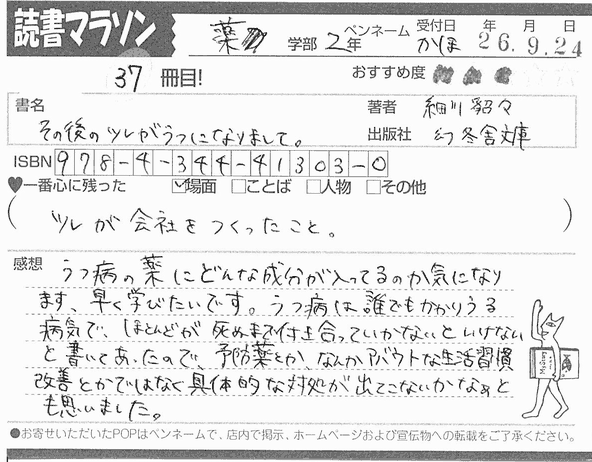 読書マラソン
薬 学部 2年
ペンネーム かほ
受付日 年 月 日
26.9.24
37 冊目!
おすすめ度
書名
その後のツレがうつになりまして。
著者 細川貂々
出版社 幻冬舎文庫
ISBN 978-4-344-41303-0
♥一番心に残った ☑場面 □ことば □人物 □その他
(ツレが会社をつくったこと。)
感想
うつ病の薬にどんな成分が入ってるのか気になり
ます、早く学びたいです。うつ病は誰でもかかりうる
病気で、ほとんどが死ぬまで付き合っていかないといけない
と書いてあったので、予防薬とか、なんかアバウトな生活習慣
改善とかではなく具体的な対処が出てこないかなぁと
も思いました。
●お寄せいただいたPOPはペンネームで、店内で掲示、ホームページおよび宣伝物への転載をご了承ください。